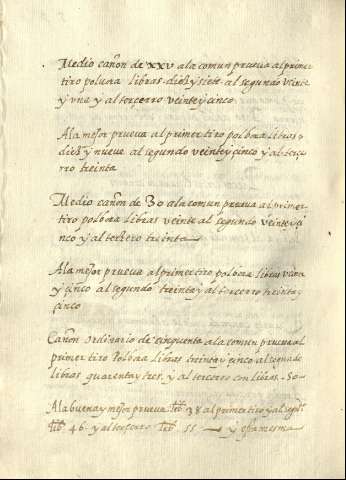 Medio cañon de XXV ala comun prueva al primer
tiro polvora libras diez y siete al segundo veinte
y una y al tercerro veinte y cinco
Ala mejor prueva al primer tiro polvora libras
diez y nueve al segundo veinte y cinco y al terce
rro treinta
Medio cañon de 30 ala comun prueva al primer
tiro polvora libras veinte al segundo veinte y ci
nco y al tercero treinta
Ala mejor prueva al primer tiro polvora libras
y cinco al segundo treinta y al tercerro treinta y
cinco
Cañon ordinario de cinquenta ala comun prueva al
primer tiro Polvora libras treinta y cinco al segundo
libras quarenta y tres y al tercerro con libras 50
Ala buena y mejor prueva lib. 38 al primer tiro y al segdo
lib. 46 y al tercerro lib. 55